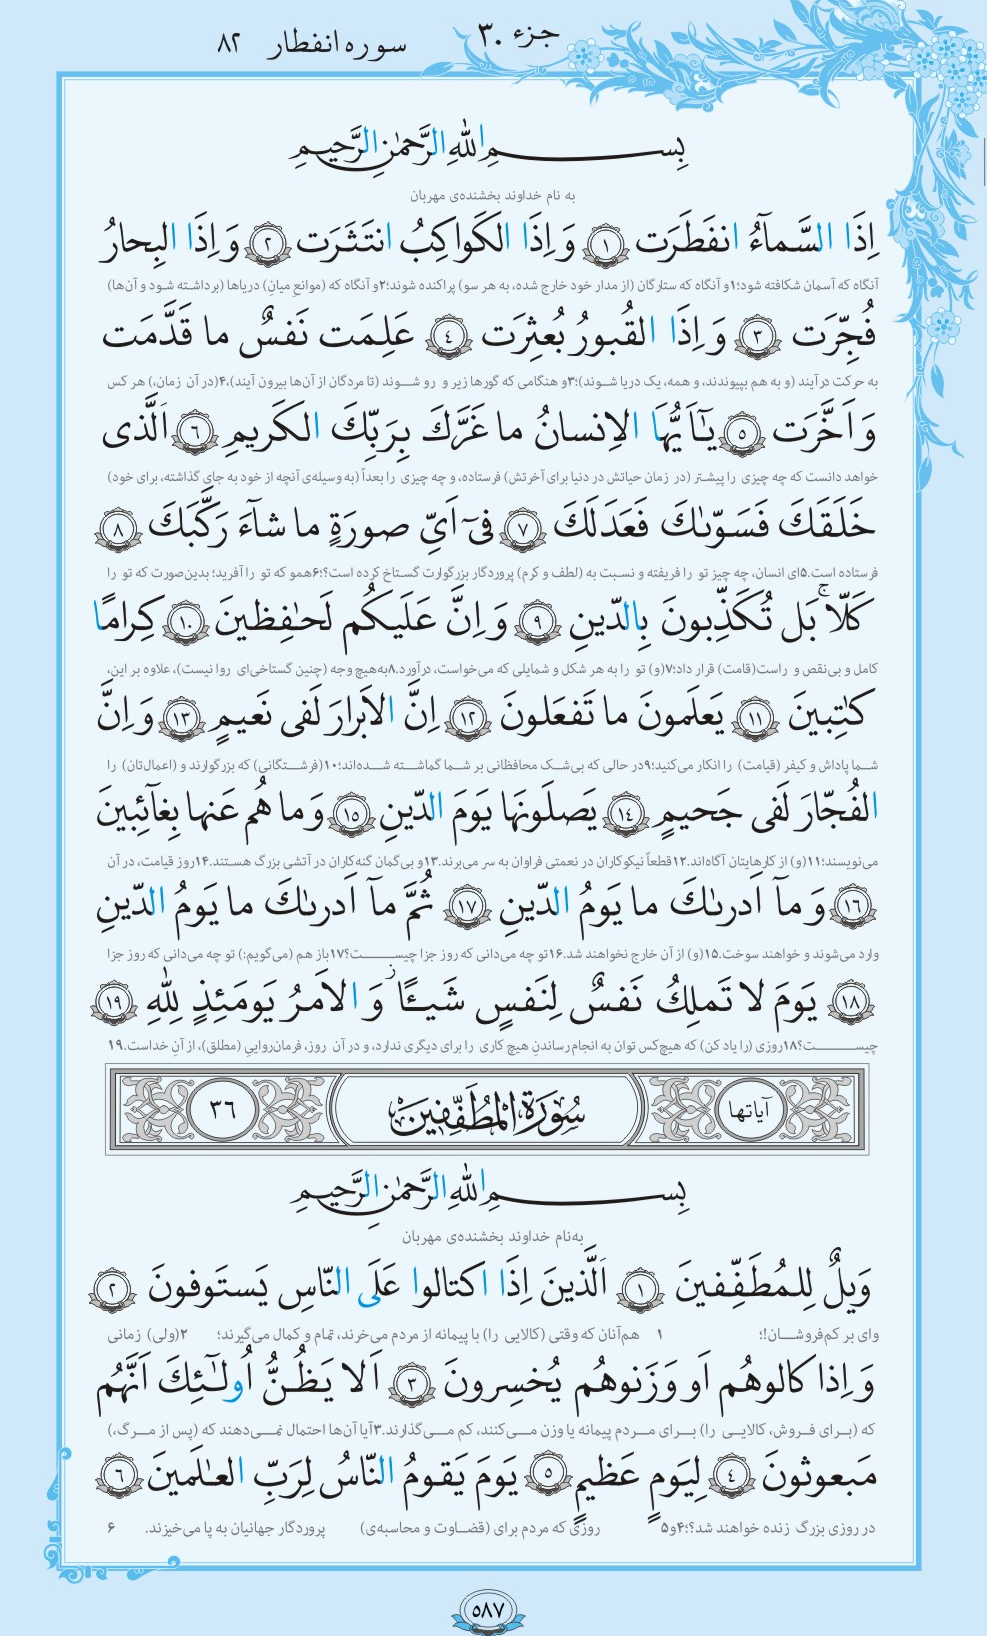 جزء ۳۰
سوره انفطار ۸۲
بِسمِ اللّٰهِ الرَّحمٰنِ الرَّحیمِ
به نام خداوند بخشنده‌ی مهربان
اِذَا السَّماۤءُ انفَطَرَت ﴿۱﴾ وَ اِذَا الكَواكِبُ انتَثَرَت ﴿۲﴾ وَ اِذَا البِحارُ
آنگاه که آسمان شکافته شود؛۱و آنگاه که ستارگان (از مدار خود خارج شده، به هر سو) پراکنده شوند؛۲و آنگاه که (موانع میانِ) دریاها (برداشته شود و آن‌ها)
فُجِّرَت ﴿۳﴾ وَ اِذَا القُبورُ بُعثِرَت ﴿٤﴾ عَلِمَت نَفسٌ ما قَدَّمَت
به حرکت درآیند (و به هم بپیوندند، و همه، یک دریا شوند)؛۳و هنگامی که گورها زیر و رو شوند (تا مردگان از آن‌ها بیرون آیند)،۴(در آن زمان،) هر کس
وَ اَخَّرَت ﴿٥﴾ یٰۤاَیُّهَا الاِنسانُ ما غَرَّكَ بِرَبِّكَ الكَریمِ ﴿٦﴾ اَلَّذی
خواهد دانست که چه چیزی را پیشتر (در زمان حیاتش در دنیا برای آخرتش) فرستاده، و چه چیزی را بعداً (به وسیله‌ی آنچه از خود به جای گذاشته، برای خود)
خَلَقَكَ فَسَوّىٰكَ فَعَدَلَكَ ﴿۷﴾ فیۤ اَیِّ صورَةٍ ما شاۤءَ رَكَّبَكَ ﴿۸﴾
فرستاده است.۵ای انسان، چه چیز تو را فریفته و نسبت به (لطف و کرم) پروردگار بزرگوارت گستاخ کرده است؟؛۶همو که تو را آفرید؛ بدین‌صورت که تو را
كَلّا ۚ بَل تُكَذِّبونَ بِالدّینِ ﴿۹﴾ وَ اِنَّ عَلَیكُم لَحـٰفِظینَ ﴿۱۰﴾ كِرامًا
کامل و بی‌نقص و راست(قامت) قرار داد؛۷(و) تو را به هر شکل و شمایلی که می‌خواست، درآورد.۸به‌هیچ وجه (چنین گستاخی‌ای روا نیست)، علاوه بر این،
كٰتِبینَ ﴿۱۱﴾ یَعلَمونَ ما تَفعَلونَ ﴿۱۲﴾ اِنَّ الاَبرارَ لَفی نَعیمٍ ﴿۱۳﴾ وَ اِنَّ
شما پاداش و کیفر (قیامت) را انکار می‌کنید؛۹در حالی که بی‌شک محافظانی بر شما گماشته شده‌اند؛۱۰(فرشتگانی) که بزرگوارند و (اعمال‌تان) را
الفُجّارَ لَفی جَحیمٍ ﴿۱٤﴾ یَصلَونَها یَومَ الدّینِ ﴿۱٥﴾ وَ ما هُم عَنها بِغاۤئِبینَ
می‌نویسند؛۱۱(و) از کارهایتان آگاه‌اند.۱۲قطعاً نیکوکاران در نعمتی فراوان به سر می‌برند.۱۳و بی‌گمان گنه‌کاران در آتشی بزرگ هستند.۱۴روز قیامت، در آن
﴿۱٦﴾ وَ ماۤ اَدرىٰكَ ما یَومُ الدّینِ ﴿۱۷﴾ ثُمَّ ماۤ اَدرىٰكَ ما یَومُ الدّینِ
وارد می‌شوند و خواهند سوخت.۱۵(و) از آن خارج نخواهند شد.۱۶تو چه می‌دانی که روز جزا چیست؟۱۷باز هم (می‌گویم:) تو چه می‌دانی که روز جزا
﴿۱۸﴾ یَومَ لا تَملِكُ نَفسٌ لِنَفسٍ شَیـًٔا ز وَ الاَمرُ یَومَئِذٍ لِلّٰهِ ﴿۱۹﴾
چیست؟۱۸روزی (را یاد کن) که هیچ‌کس توان به انجام رساندنِ هیچ کاری را برای دیگری ندارد، و در آن روز، فرمان‌رواییِ (مطلق)، از آنِ خداست.۱۹
آیاتها سُورَةُ المُطَفِّفِینَ ۳٦
بِسمِ اللّٰهِ الرَّحمٰنِ الرَّحیمِ
به‌نام خداوند بخشنده‌ی مهربان
وَیلٌ لِلمُطَفِّفینَ ﴿۱﴾ اَلَّذینَ اِذَا اكتالوا عَلَى النّاسِ یَستَوفونَ ﴿۲﴾
وای بر کم‌فروشان!؛ ۱ هم‌آنان که وقتی (کالایی را) با پیمانه از مردم می‌خرند، تمام و کمال می‌گیرند؛ ۲(ولی) زمانی
وَ اِذا كالوهُم اَو وَزَنوهُم یُخسِرونَ ﴿۳﴾ اَلا یَظُنُّ اُولـٰۤئِكَ اَنَّهُم
که (برای فروش، کالایی را) برای مردم پیمانه یا وزن می‌کنند، کم می‌گذارند.۳آیا آن‌ها احتمال نمی‌دهند که (پس از مرگ،)
مَبعوثونَ ﴿٤﴾ لِیَومٍ عَظیمٍ ﴿٥﴾ یَومَ یَقومُ النّاسُ لِرَبِّ العـٰلَمینَ ﴿٦﴾
در روزی بزرگ زنده خواهند شد؟؛۴و۵ روزی که مردم برای (قضاوت و محاسبه‌ی) پروردگار جهانیان به پا می‌خیزند. ۶
٥۸۷